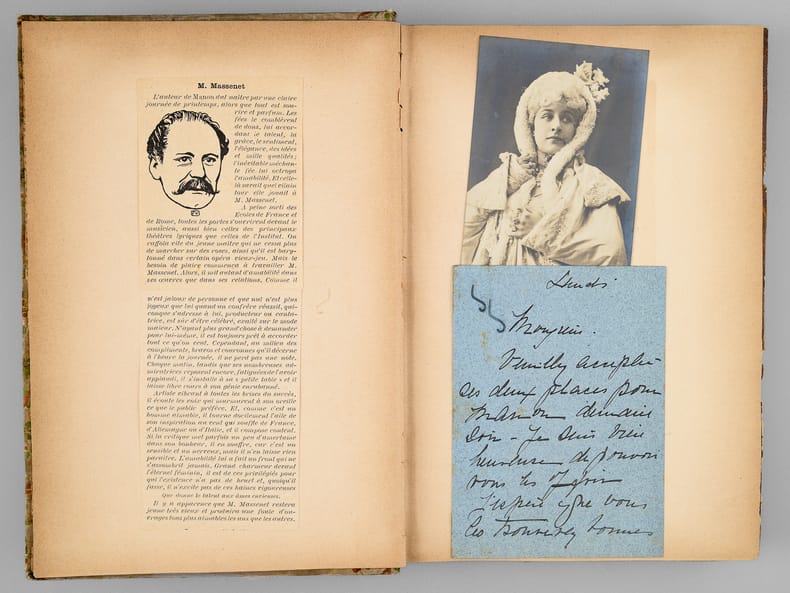 M. Massenet
L'auteur de Manon dut naître par une claire
journée de printemps, alors que tout est sou-
rire et parfum. Les
fées le comblèrent
de dons, lui accor-
dant le talent, la
grâce, le sentiment,
l'élégance, des idées
et mille qualités ;
l'inévitable méchan-
te fée lui octroya
l'amabilité. Et celle-
là savait quel vilain
tour elle jouait à
M. Massenet.
A peine sorti des
Ecoles de France et
de Rome, toutes les portes s'ouvrirent devant le
musicien, aussi bien celles des principaux
théâtres lyriques que celles de l'Institut. On
raffola vite du jeune maître qui ne cessa plus
de marcher sur des roses, ainsi qu'il est bary-
tonné dans certain opéra vieux-jeu. Mais le
besoin de plaire commença à travailler M.
Massenet. Alors, il mit autant d'amabilité dans
ses œuvres que dans ses relations. Comme il
n'est jaloux de personne et que nul n'est plus
joyeux que lui quand un confrère réussit, qui-
conque s'adresse à lui, producteur ou canta-
trice, est sûr d'être célébré, exalté sur le mode
majeur. N'ayant plus grand'chose à demander
pour lui-même, il est toujours prêt à accorder
tout ce qu'on veut. Cependant, au milieu des
compliments, bravos et couronnes qu'il décerne
à l'heure la journée, il ne perd pas une note.
Chaque matin, tandis que ses nombreuses ad-
miratrices reposent encore, fatiguées de l'avoir
applaudi, il s'installe à sa « petite table » et il
laisse libre cours à son génie enrubanné.
Artiste vibrant à toutes les brises du succès,
il écoute les voix qui murmurent à son oreille
ce que le public préfère. Et, comme c'est un
homme aimable, il tourne docilement l'aile de
son inspiration au vent qui souffle de France,
d'Allemagne ou d'Italie, et il compose content.
Si la critique met parfois un peu d'amertume
dans son bonheur, il en souffre, car c'est un
sensible et un nerveux, mais il n'en laisse rien
paraître. L'amabilité lui a fait un front qui ne
s'assombrit jamais. Grand charmeur devant
l'éternel féminin, il est de ces privilégiés pour
qui l'existence n'a pas de heurt et, quoiqu'il
fasse, il n'excite pas de ces haines vigoureuses
Que donne le talent aux âmes curieuses.
Il y a apparence que M. Massenet restera
jeune très vieux et produira une foule d'ou-
vrages tous plus aimables les uns que les autres.
Lundi
Monsieur.
Veuillez accepter
ces deux places pour
Manon demain
soir - Je suis bien
heureuse de pouvoir
vous les
J'espère que vous
les trouverez bonnes